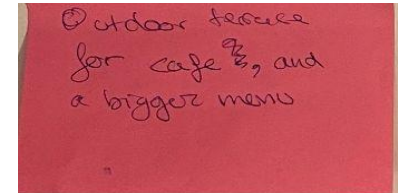 Outdoor terrace
for cafe, and
a bigger menu